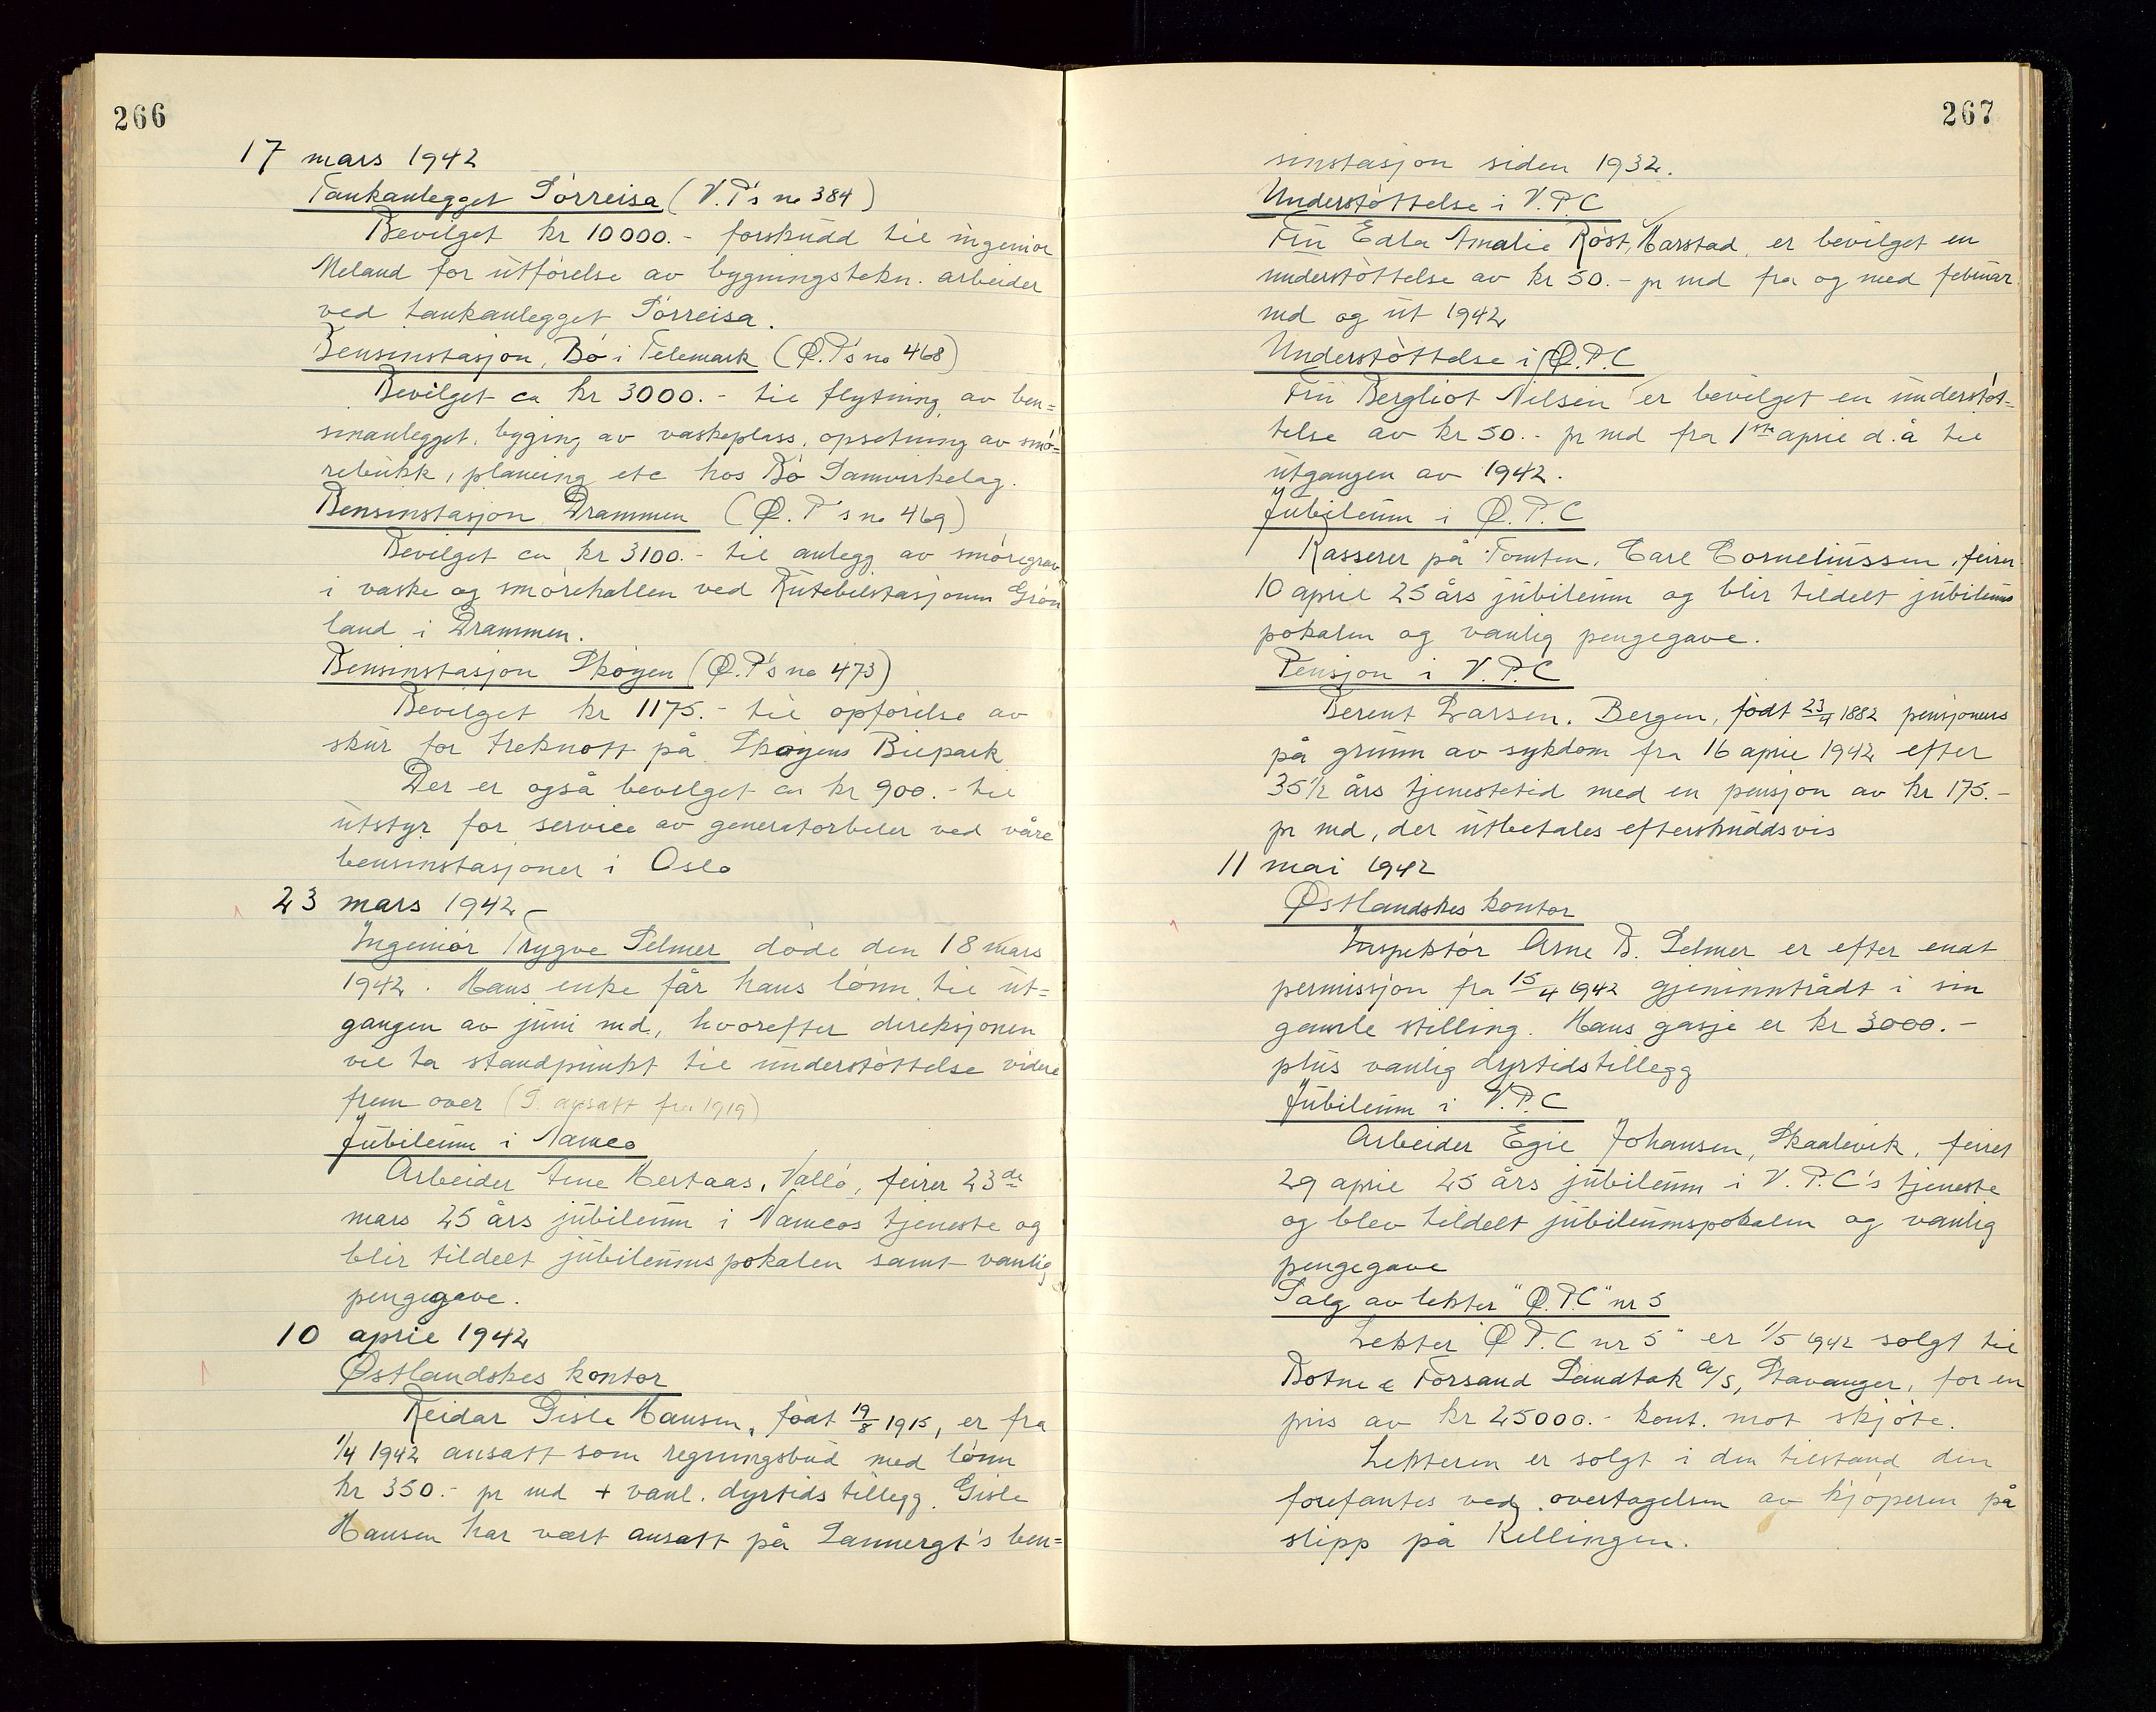 266
17 mars 1942
Tankanlegget Sørreisa (V.P's no 384)
Bevilget kr 10000.- forskudd til ingeniør
Meland for utførelse av bygningstekn. arbeider
ved tankanlegget Sørreisa.
Bensinstasjon, Bø i Telemark (Ø.P's no 468)
Bevilget ca kr 3000.- til flytning av ben=
sinanlegget, byging av vaskeplass, opsetning av smø=
rebukk, planering etc hos Bø Samvirkelag.
Bensinstasjon Drammen (Ø.P's no 469)
Bevilget ca kr 3100.- til anlegg av smøregrav
i vaske og smørehallen ved Rutebilstasjonen Grøn
land i Drammen.
Bensinstasjon Skøyen (Ø.P's no 473)
Bevilget kr 1175.- til opførelse av
skur for treknott på Skøyens Bilpark
Der er også bevilget ca kr 900.- til
utstyr for service av generatorbiler ved våre
bensinstasjoner i Oslo
23 mars 1942
Ingeniør Trygve Selmer døde den 18 mars
1942. Hans enke får hans lønn til ut=
gangen av juni md, hvorefter direksjonen
vil ta standpunkt til understøttelse videre
frem over (S. ansatt fra 1919)
Jubileum i Nameo
Arbeider Arne Hertaas, Vallø, feirer 23de
mars 25 års jubileum i Nameos tjeneste og
blir tildelt jubileumspokalen samt vanlig
pengegave.
10 april 1942
Østlandskes kontor
Reidar Gisle Hansen, født 19/8 1915, er fra
1/4 1942 ansatt som regningsbud med lønn
kr 350.- pr md + vanl. dyrtids tillegg. Gisle
Hansen har vært ansatt på Sannergt's ben=
267
sinstasjon siden 1932.
Understøttelse i V.P.C
Fru Edla Amalie Røst, Harstad, er bevilget en
understøttelse av kr 50.- pr md fra og med februar
md og ut 1942
Understøttelse i Ø.P.C
Fru Bergliot Nilsen er bevilget en understøt=
telse av kr 50.- pr md fra 1ste april d.å til
utgangen av 1942.
Jubileum i Ø.P.C
Kasserer på Tomten, Carl Corneliussen, feirer
10 april 25 års jubileum og blir tildelt jubileums
pokalen og vanlig pengegave.
Pensjon i V.P.C
Berent Larsen, Bergen, født 23/4 1882 pensjoneres
på grunn av sykdom fra 16 april 1942 efter
35 1/2 års tjenestetid med en pensjon av kr 175.-
pr md, der utbetales efterskuddsvis
11 mai 1942
Østlandskes kontor
Inspektør Arne B. Selmer er efter endt
permissjon fra 15/4 1942 gjeninntrådt i sin
gamle stilling. Hans gasje er kr 3000.-
plus vanlig dyrtidstillegg
Jubileum i V.P.C
Arbeider Egil Johansen, Skaalevik, feiret
29 april 25 års jubileum i V.P.C's tjeneste
og blev tildelt jubileumspokalen og vanlig
pengegave
Salg av lekter "Ø.P.C" nr 5
Lekter "Ø P.C nr 5" er 1/5 1942 solgt til
Botne & Forsand Sandtak A/S, Stavanger, for en
pris av kr 25000.- kont. mot skjøte.
Lekteren er solgt i den tilstand den
forefantes ved overtagelsen av kjøperen på
slipp på Kellingen.